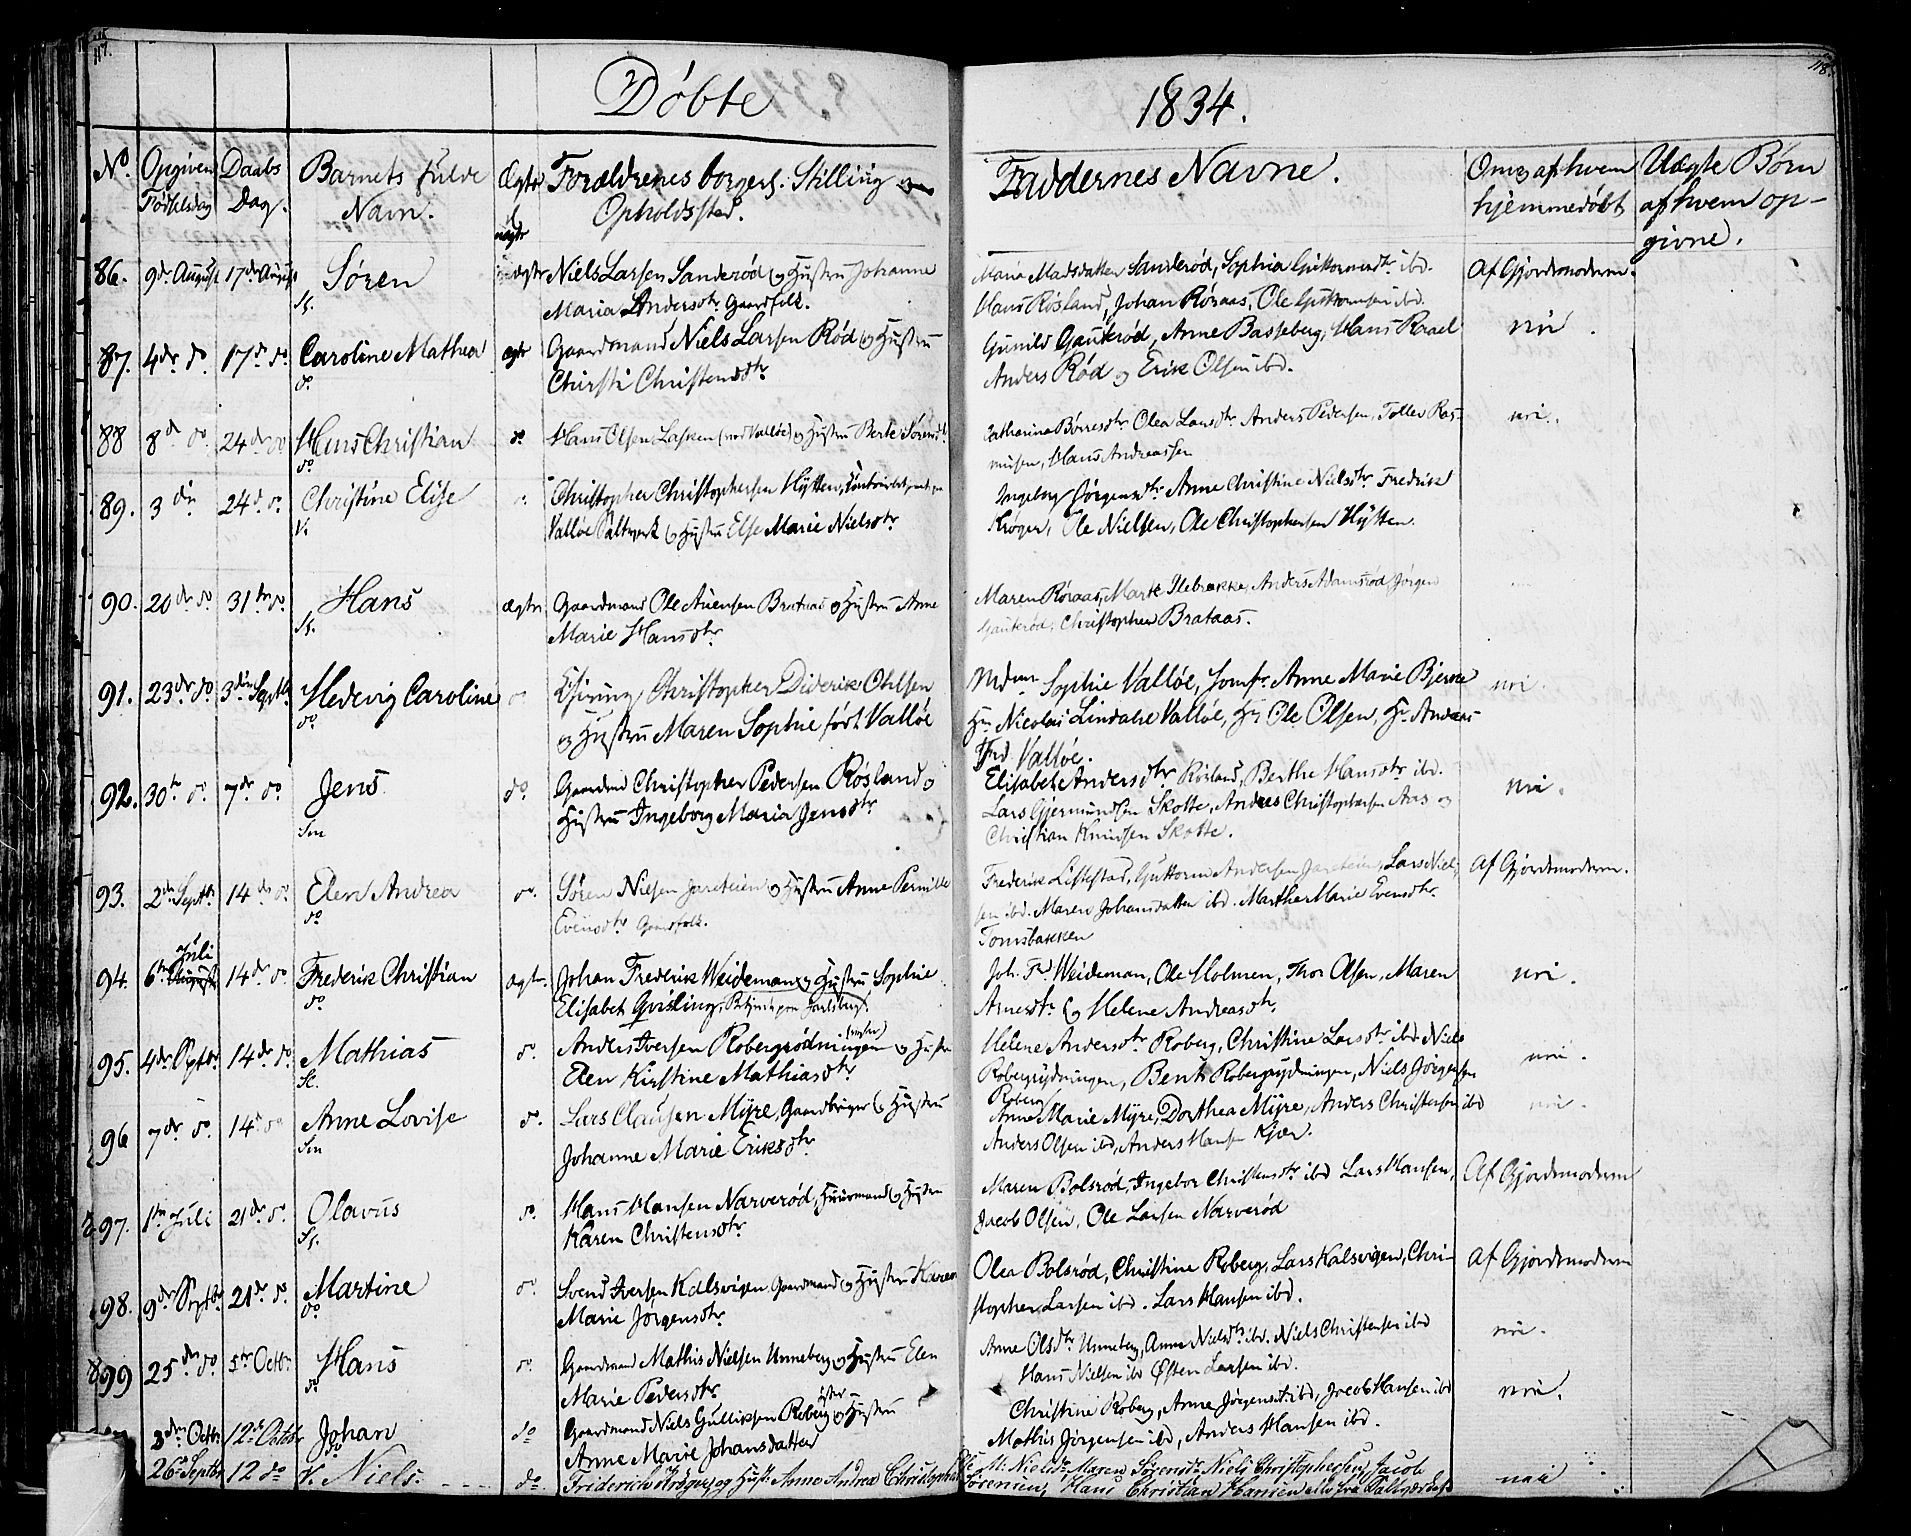 117.
118.
Døbte
1834.
No. Opgiven Fødselsdag Daabs Dag. Barnets fulde Navn. Ægte el. uægte Forældrenes borgerl. Stilling og Opholdssted. Faddernes Navne. Om og af hvem hjemmedøbt Uægte Børn af hvem opgivne.
86. 9de August 17de August Søren Niels Larsen Sanderød og Hustru Johanne
Maria Andersdtr. Gaardfolk.
Maria Madsdatter Sanderød, Sophia Guttormsdtr. ibd.
Hans Røsland, Johan Røraas, Ole Guttormsen ibd.
Af Gjordemoderen.
87. 4de do 17de do Caroline Mathea ægte Gaardmand Niels Larsen Rød og Hustru
do Christi Christensdtr.
Gunild Gaukerød, Anne Basseberg, Hans Raael
Anders Rød og Erik Olsen ibd.
nei.
88 8de do 24de do Hans Christian do Hans Olsen Lasken (ved Valløe) og Hustru Berte Sørensdtr.
do
Catharina Børresdtr. Olea Larsdtr. Anders Pedersen, Tollev Ras-
musen, Hans Andreassen
nei.
89. 3die 24de do Christine Elise Christopher Christophersen Hytten,
V. Valløe Saltverk og Hustru Else Marie Nielsdtr.
Ingeborg Jørgensdtr. Anne Christine Nielsdtr. Fredrik
Krøger, Ole Nielsen, Ole Christophersen Hytten.
90. 20de do 31te do Hans ægte Gaardmand Ole Auensen Brataas og Hustru Anne
S. Marie Hansdtr.
Maren Røraas, Marte Ilebrække, Anders Adamsrød, Jørgen
Gaukerød, Christopher Brataas.
91. 23de do 3die Septbr. Hedevig Caroline do Christopher Diderik Ohlsen
do og Hustru Maren Sophie født Valløe
Mdm. Sophie Valløe, Jomfr. Anne Marie Bjerke
Hr. Nicolai Lindahl Valløe, Hr. Ole Olsen, Hr. Andreas
Frd. Valløe.
nei.
92. 30te do 7de do Jens do. Gaardmd. Christopher Pedersen Røsland og
Sem Hustru Ingeborg Maria Jensdtr.
Elisabeth Andersdtr. Røsland, Berthe Hansdtr. ibd.
Lars Gjermundsen Skotte, Andreas Christophersen Aas og
Christian Knudsen Skotte.
nei.
93. 2de Septbr. 14de do Elen Andrea do. Søren Nielsen Jareteien og Hustru Anne Pernille
do Evensdtr. Gaardfolk.
Frederik Liststad, Guttorm Andersen Jareteien, Lars Niel-
sen ibd. Maren Johansdatter ibd. Marthe Marie Evensdtr.
Tomsbakken
Af Gjordemoderen.
94. 6te Juli 14de do Frederik Christian ægte. Johan Frederik Weideman og Hustru Sophie
do Elisabet Qvisling,
Joh. Frd. Weideman, Ole Holmen, Thor Olsen, Maren
Arnesdtr. og Helene Andreasdtr.
nei.
95. 4de Septbr. 14de do Mathias do. Anders Iversen Robergrødningen (nedre) og Hustru
Se. Elen Kirstine Mathiasdtr.
Helene Andersdtr. Roberg, Christine Larsdtr. ibd. Niels
Robergrydningen, Bent Robergrydningen, Niels Jørgensen
Roberg
nei.
96 7de do 14de do Anne Lovise do. Lars Clausen Myre, Gaardbruger og Hustru
Sem Johanne Marie Eriksdtr.
Anne Marie Myre, Dorthea Myre, Anders Christensen ibd
Anders Olsen ibd, Anders Hansen Kjær.
nei.
97. 1te Juli 21de do Olavus do. Hans Hansen Narverød, Huusmand og Hustru
S. Karen Christensdtr.
Maren Bolsrød, Ingebor Christensdtr. ibd Lars Hansen,
Jacob Olsen, Ole Larsen Narverød
Af Gjordemoderen
98. 9de Septbr. 21de do Martine do Svend Iversen Kalsvigen Gaardmand og Hustru Karen
do Marie Jørgensdtr.
Olea Bolsrød, Christine Roberg, Lars Kalsvigen, Chri-
stopher Larsen ibd. Lars Hansen ibd.
Af Gjordemoderen
99 25de do 5te Octbr. Hans do. Gaardmand Mathis Nielsen Unneberg og Hustru Elen
do Marie Pedersdtr.
Anne Olsdtr. Unneberg, Anne Nielsdtr. ibd. Niels Christensen ibd
Hans Nielsen ibd Østen Larsen ibd.
nei.
3die Octbr. 12te Octbr. Johan do Gaardmand Niels Gulliksen Roberg østre og Hustru
do Anne Marie Johansdatter
Christine Roberg, Anne Jørgensdt. ibd, Jacob Hansen ibd
Mathis Jørgensen ibd, Anders Hansen ibd.
nei.
26de Septbr. 12 do V. Niels. do Friderich Krøger og Hust. Anne Andrea Christophdtr.
M. Nielsdr. Maren Sørensdr. Niels Christophersen, Jacob
Sørensen, Hans Christian Hansen alle fra Saltværket
nei